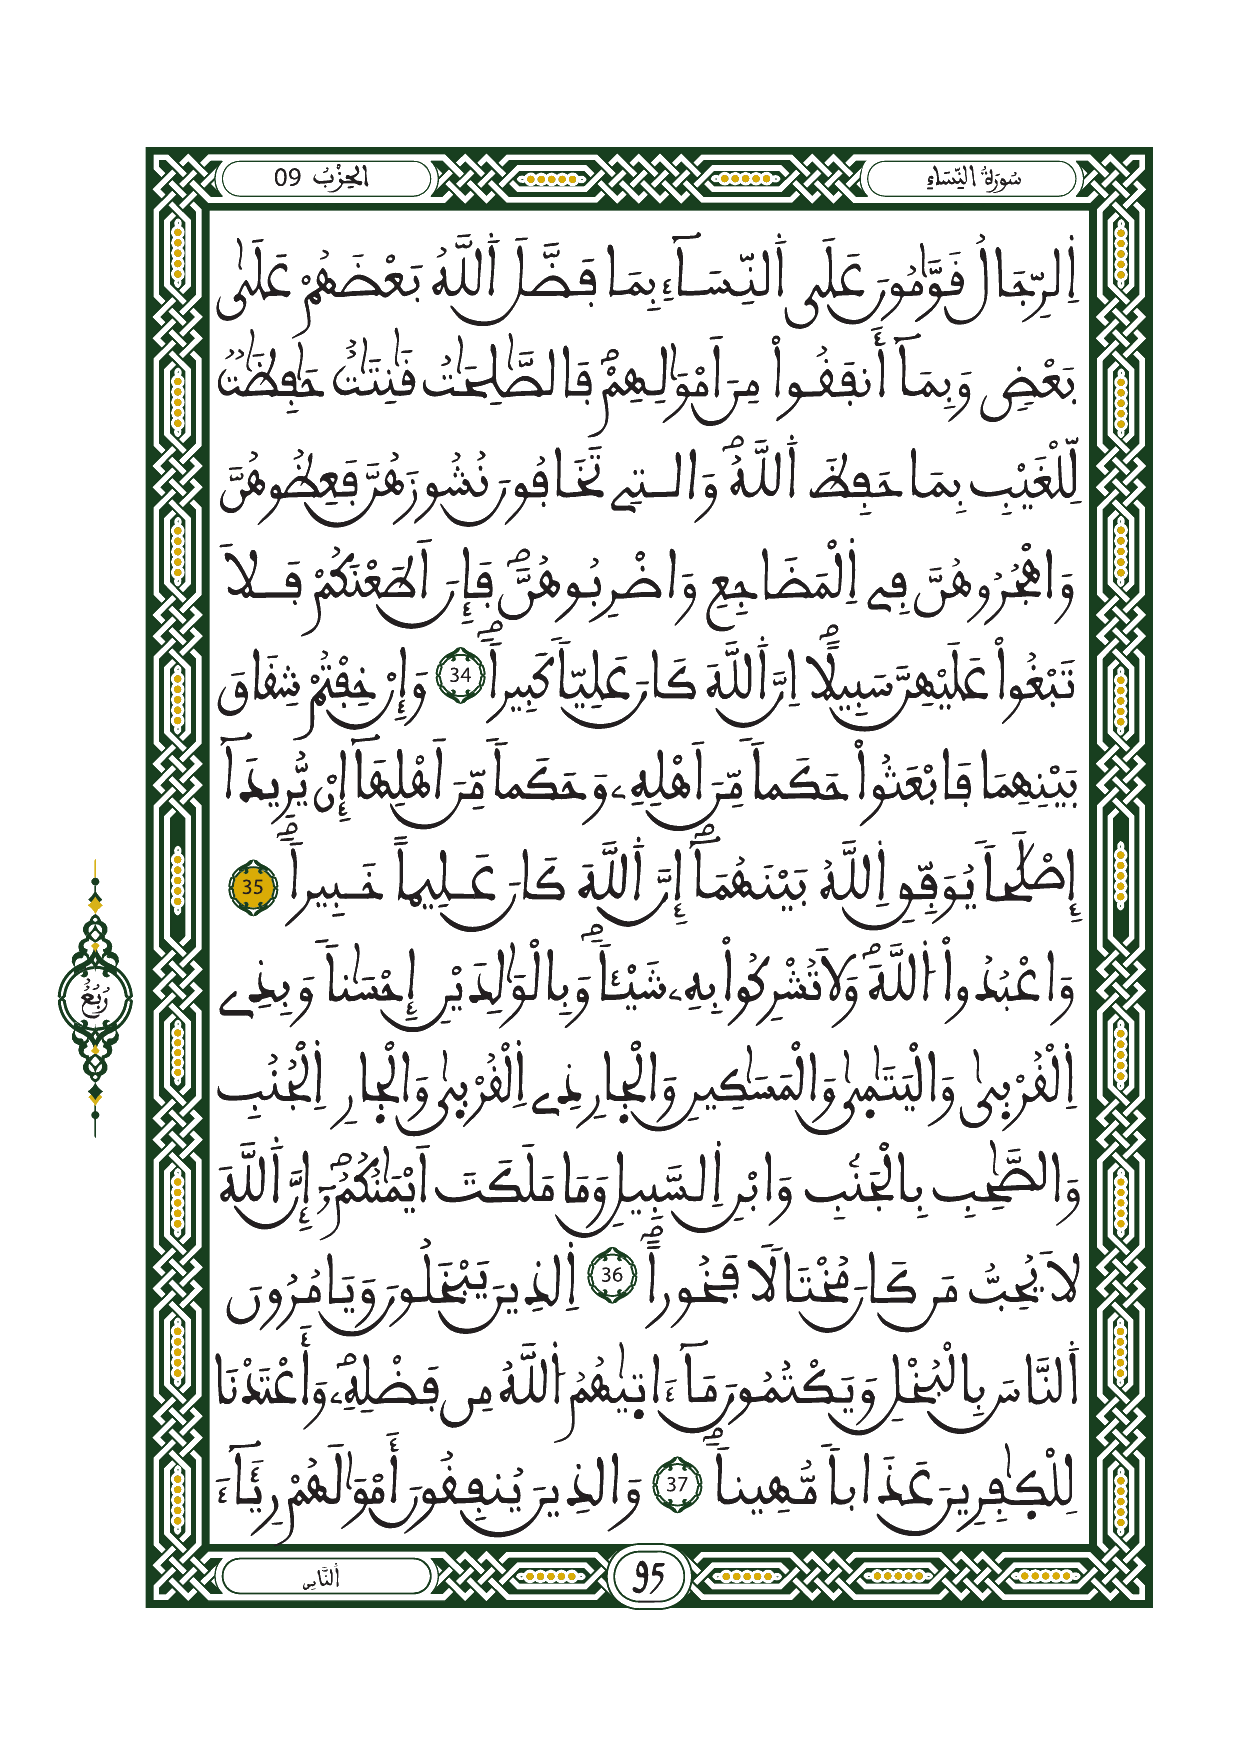 سُورَةُ النِّسَاءِ
الحِزْبُ 09
اَ۬لرِّجَالُ قَوَّٰمُونَ عَلَى اَ۬لنِّسَآءِ بِمَا فَضَّلَ اَ۬للَّهُ بَعْضَهُمْ عَلَىٰ
بَعْضٖ وَبِمَآ أَنفَقُواْ مِنَ اَمْوَٰلِهِمْۖ فَالصَّٰلِحَٰتُ قَٰنِتَٰتٌ حَٰفِظَٰتٞ
لِّلْغَيْبِ بِمَا حَفِظَ اَ۬للَّهُۖ وَالتِے تَخَافُونَ نُشُوزَهُنَّ فَعِظُوهُنَّ
وَاهْجُرُوهُنَّ فِے اِ۬لْمَضَاجِعِ وَاضْرِبُوهُنَّۖ فَإِنَ اَطَعْنَكُمْ فَلَا
تَبْغُواْ عَلَيْهِنَّ سَبِيلًاۖ اِنَّ اَ۬للَّهَ كَانَ عَلِيّاٗ كَبِيراٗۖ 34 وَإِنْ خِفْتُمْ شِقَاقَ
بَيْنِهِمَا فَابْعَثُواْ حَكَماٗ مِّنَ اَهْلِهِۦ وَحَكَماٗ مِّنَ اَهْلِهَآ إِنْ يُّرِيدَآ
إِصْلَٰحاٗ يُوَفِّقِ اِ۬للَّهُ بَيْنَهُمَآۖ إِنَّ اَ۬للَّهَ كَانَ عَلِيماً خَبِيراٗۖ 35
وَاعْبُدُواْ اُ۬للَّهَۖ وَلَا تُشْرِكُواْ بِهِۦ شَيْـٔاٗۖ وَبِالْوَٰلِدَيْنِ إِحْسَٰناٗ وَبِذِے
اِ۬لْقُرْب۪ىٰ وَالْيَتَٰم۪ىٰ وَالْمَسَٰكِينِ وَالْج۪ارِ ذِے اِ۬لْقُرْب۪ىٰ وَالْج۪ارِ اِ۬لْجُنُبِ
وَالصَّٰحِبِ بِالْجَنۢبِ وَابْنِ اِ۬لسَّبِيلِ وَمَا مَلَكَتَ اَيْمَٰنُكُمُۥٓۖ إِنَّ اَ۬للَّهَ
لَا يُحِبُّ مَن كَانَ مُخْتَالاٗ فَخُوراًۖ 36 اِ۬لذِينَ يَبْخَلُونَ وَيَامُرُونَ
اَ۬لنَّاسَ بِالْبُخْلِ وَيَكْتُمُونَ مَآ ءَات۪يٰهُمُ اُ۬للَّهُ مِن فَضْلِهِۦۖ وَأَعْتَدْنَا
لِلْكٰ۪فِرِينَ عَذَاباٗ مُّهِيناٗۖ 37 وَالذِينَ يُنفِقُونَ أَمْوَٰلَهُمْ رِئَآءَ
رُبُعُ
95